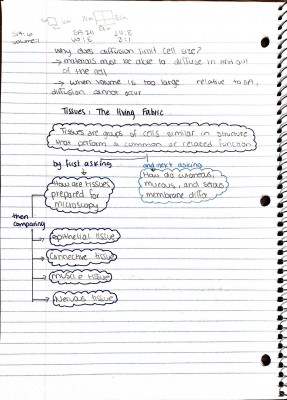 SA: 6
volume: 1
SA: 24
vol: 8
24:8
3:1
Why does diffusion limit cell size?
→ materials must be able to diffuse in and out
of the cell
→ when volume is too large relative to SA,
diffusion cannot occur
Tissues: The living Fabric
Tissues are groups of cells similar in structure
that perform a common or related function
by first asking
and next asking
How are tissues
prepared for
microscopy
How do cutaneous,
mucous, and serous
membrane differ
then
comparing
epithelial tissue
Connective tissue
muscle tissue
Nervous tissue